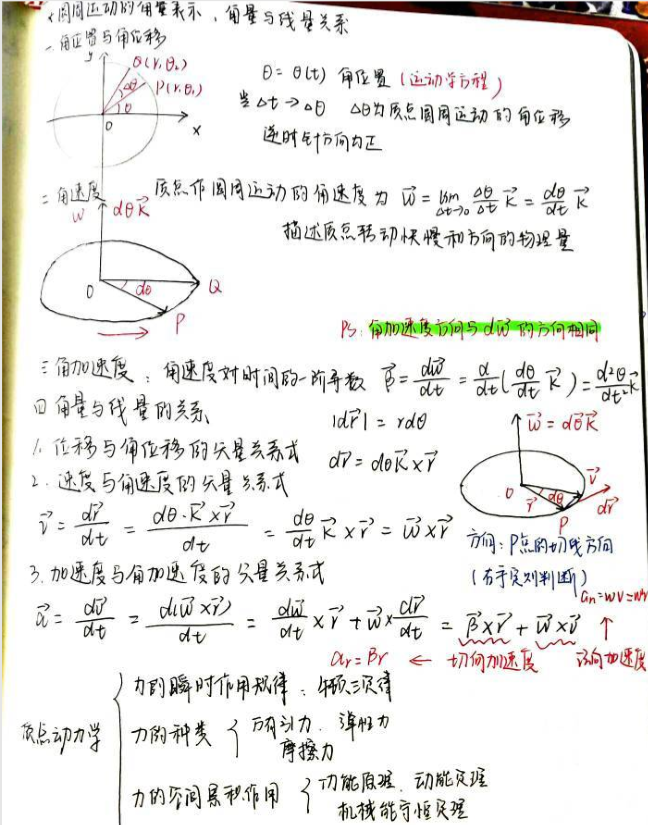 *圆周运动的角量表示，角量与线量关系
一 角位置与角位移
y
Q(r,θ₂)
P(r,θ₁)
Δθ
θ
O
x
θ=θ(t) 角位置 (运动学方程)
当Δt→Δθ Δθ为质点圆周运动的角位移
逆时针方向为正
二 角速度 质点作圆周运动的角速度为 w⃗ = lim Δt→0 Δθ/Δt k⃗ = dθ/dt k⃗
描述质点转动快慢和方向的物理量
w dθk⃗
O dθ Q
P
PS: 角加速度方向与dw⃗的方向相同
三 角加速度：角速度对时间的一阶导数 β⃗ = dw⃗/dt = d/dt(dθ/dt k⃗) = d²θ/dt² k⃗
四 角量与线量的关系
1. 位移与角位移的矢量关系式
|dr⃗| = rdθ
dr⃗ = dθk⃗×r⃗
2. 速度与角速度的矢量关系式
v⃗ = dr⃗/dt = dθ·k⃗×r⃗/dt = dθ/dt k⃗×r⃗ = w⃗×r⃗
w⃗=dθk⃗
O r⃗ dθ v⃗
P dr⃗
方向：P点的切线方向
(右手定则判断)
3. 加速度与角加速度的矢量关系式
a⃗ = dv⃗/dt = d(w⃗×r⃗)/dt = dw⃗/dt×r⃗ + w⃗×dr⃗/dt = β⃗×r⃗ + w⃗×v⃗
an=wv=w²r
aτ=βr ← 切向加速度 法向加速度
质点动力学
力的瞬时作用规律：牛顿三定律
力的种类 万有引力、弹性力
摩擦力
力的空间累积作用 功能原理、动能定理
机械能守恒定理